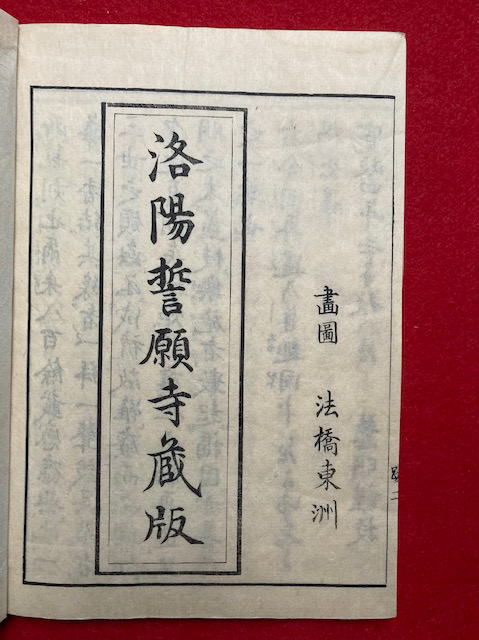 畫圖 法橋東洲
洛陽誓願寺蔵版